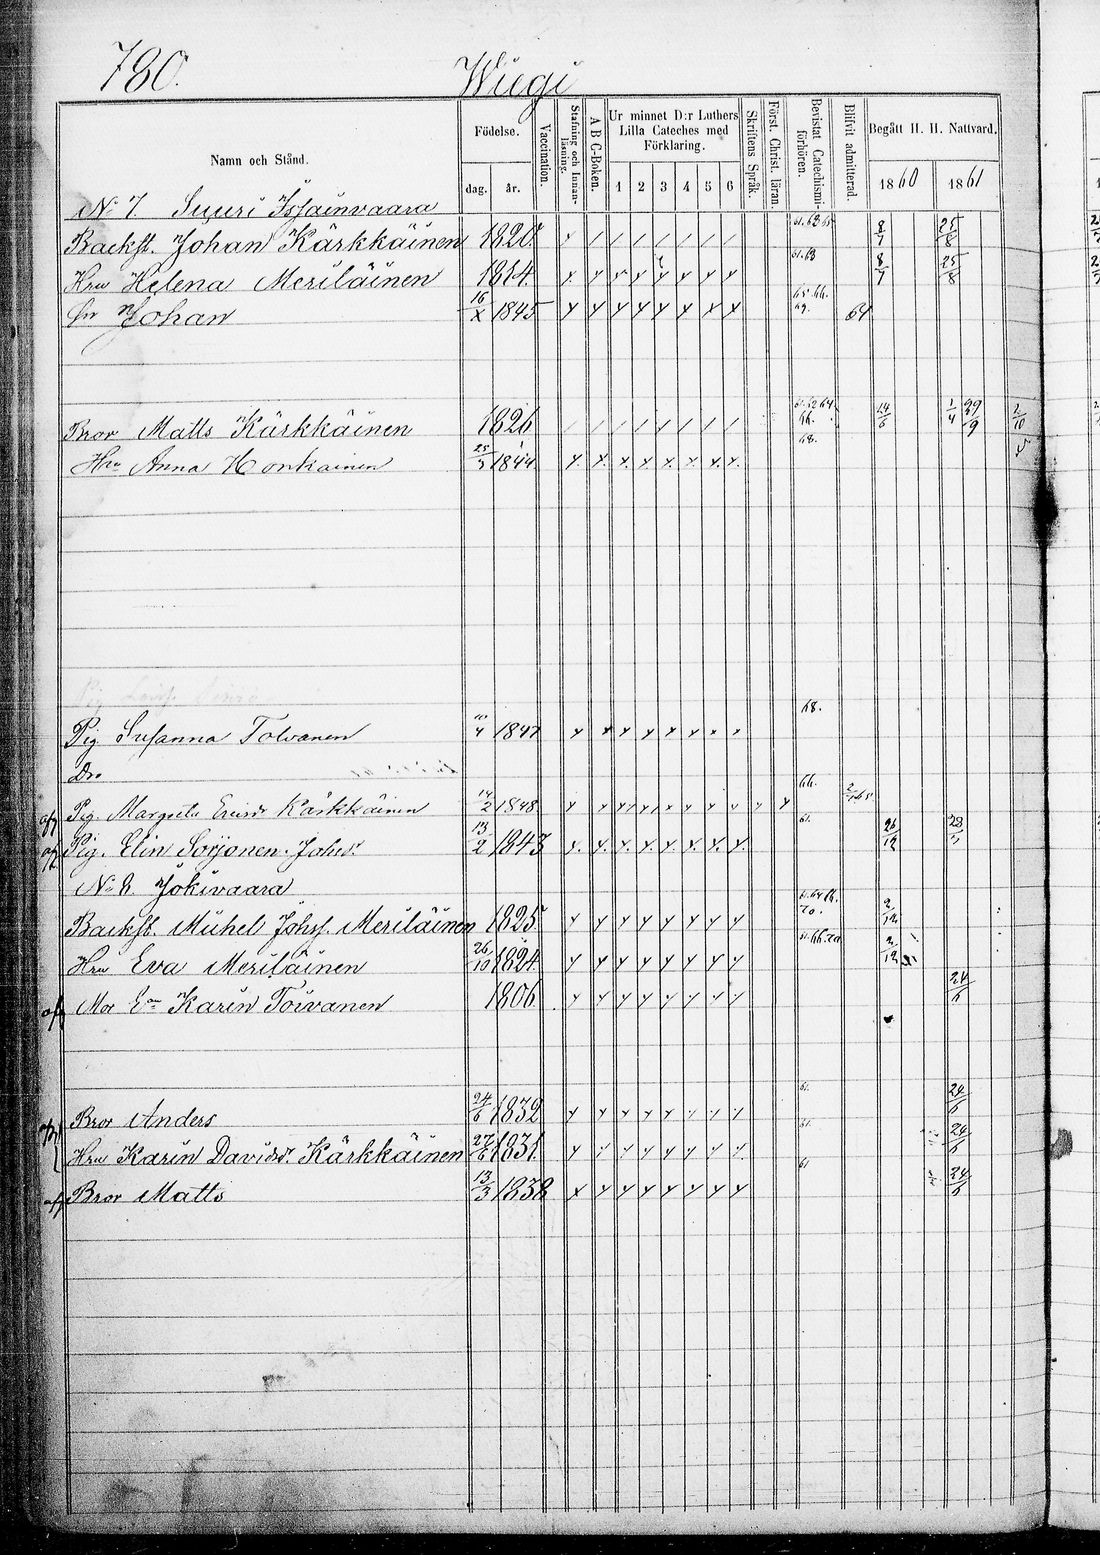 780. Wiegi
Namn och Stånd. Födelse. Vaccination. Stafning och Innanläsning. A B C-Boken. Ur minnet D:r Luthers Lilla Cateches med Förklaring. Skriftens Språk. Först. Christ. läran. Bevistat Catechismiförhören. Blifvit admitterad. Begått H. H. Nattvard.
dag. år. 1 2 3 4 5 6 1860 1861
No 7 Suuri Issainvaara
Backst. Johan Kärkkäinen 1820 61.63 8/7 25/8
Hru Helena Meriläinen 1814. 61.63 8/7 25/8
Sn Johan 16/X 1845 65.66. 69. 64
Bror Matts Kärkkäinen 1826 61.62 64. 66. 14/6 1/4 29/9 2/10
Hru Anna Honkainen 25/3 1844 68.
Pig Susanna Tolvanen 10/4 1847 68.
Dr.
Pig. Margeta Ericsdr Kärkkäinen 14/2 1848 66.
Pig. Elin Sorjonen Johsdr 13/2 1843 61. 26/12 23/3
No 8 Jokivaara
Backst. Mickel Johss. Meriläinen 1825 70. 2/12
Hru Eva Meriläinen 26/10 1824. 61.66.70 2/12
afl Mor Karin Toivanen 1806 24/6
Bror Anders 24/6 1832 61. 24/6
Hru Karin Davidsdr Kärkkäinen 27/6 1831. 61. 24/6
afl Bror Matts 13/3 1838 61 24/6